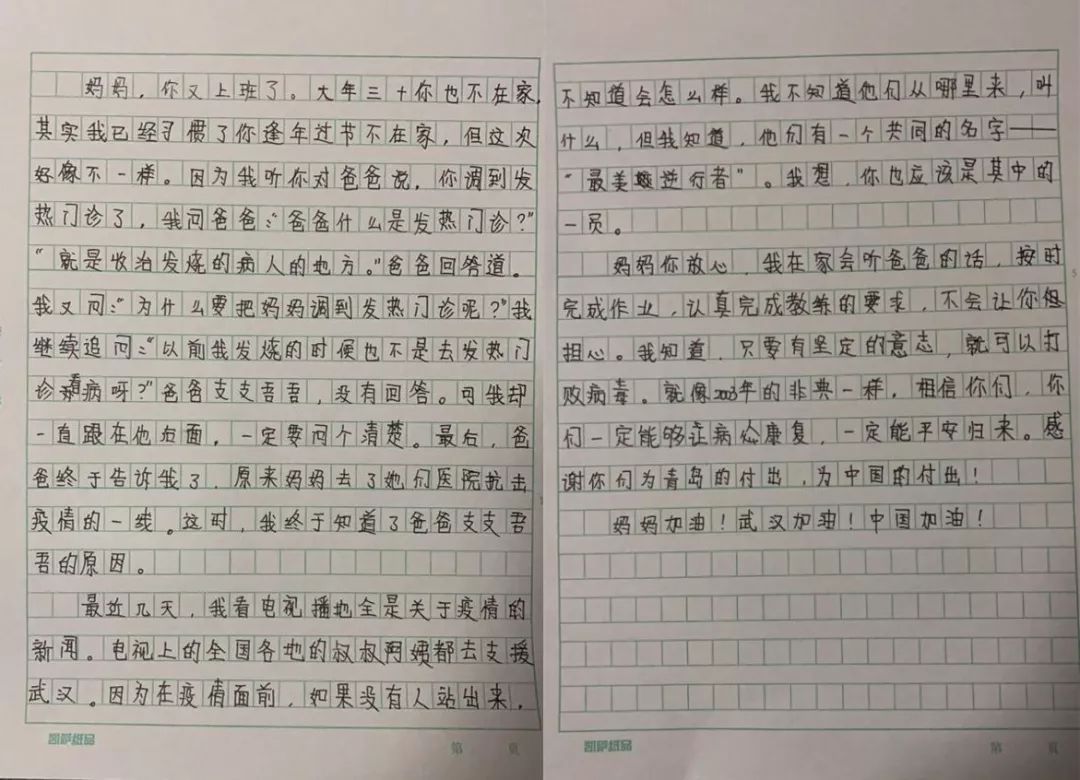 妈妈，你又上班了。大年三十你也不在家，
其实我已经习惯了你逢年过节不在家，但这次
好像不一样。因为我听你对爸爸说，你调到发
热门诊了，我问爸爸：“爸爸什么是发热门诊？”
“就是收治发烧的病人的地方。”爸爸回答道。
我又问：“为什么要把妈妈调到发热门诊呢？”我
继续追问：“以前我发烧的时候也不是去发热门
诊看病呀？”爸爸支支吾吾，没有回答。可我却
一直跟在他后面，一定要问个清楚。最后，爸
爸终于告诉我了，原来妈妈去了她们医院抗击
疫情的一线。这时，我终于知道了爸爸支支吾
吾的原因。
最近几天，我看电视播地全是关于疫情的
新闻。电视上的全国各地的叔叔阿姨都去支援
武汉。因为在疫情面前，如果没有人站出来，
凯萨纸品
第 页
不知道会怎么样。我不知道他们从哪里来，叫
什么，但我知道，他们有一个共同的名字——
“最美逆行者”。我想，你也应该是其中的
一员。
妈妈你放心，我在家会听爸爸的话，按时
完成作业，认真完成教练的要求，不会让你
担心。我知道，只要有坚定的意志，就可以打
败病毒。就像2003年的非典一样，相信你们，你
们一定能够让病人康复，一定能平安归来。感
谢你们为青岛的付出，为中国的付出！
妈妈加油！武汉加油！中国加油！
凯萨纸品
第 页